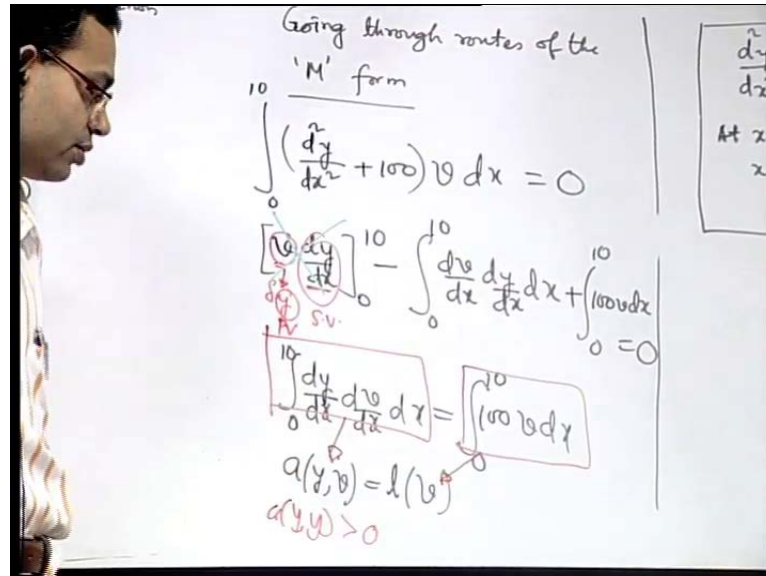 Going through routes of the
'M' form
∫₀¹⁰ (d²y/dx² + 100) v dx = 0
[v dy/dx]₀¹⁰ − ∫₀¹⁰ dv/dx dy/dx dx + ∫₀¹⁰ 100 v dx = 0
δy
PV S.V.
∫₀¹⁰ dy/dx dv/dx dx = ∫₀¹⁰ 100 v dx
a(y,v) = l(v)
a(y,y) > 0
d²y
dx
At x
x